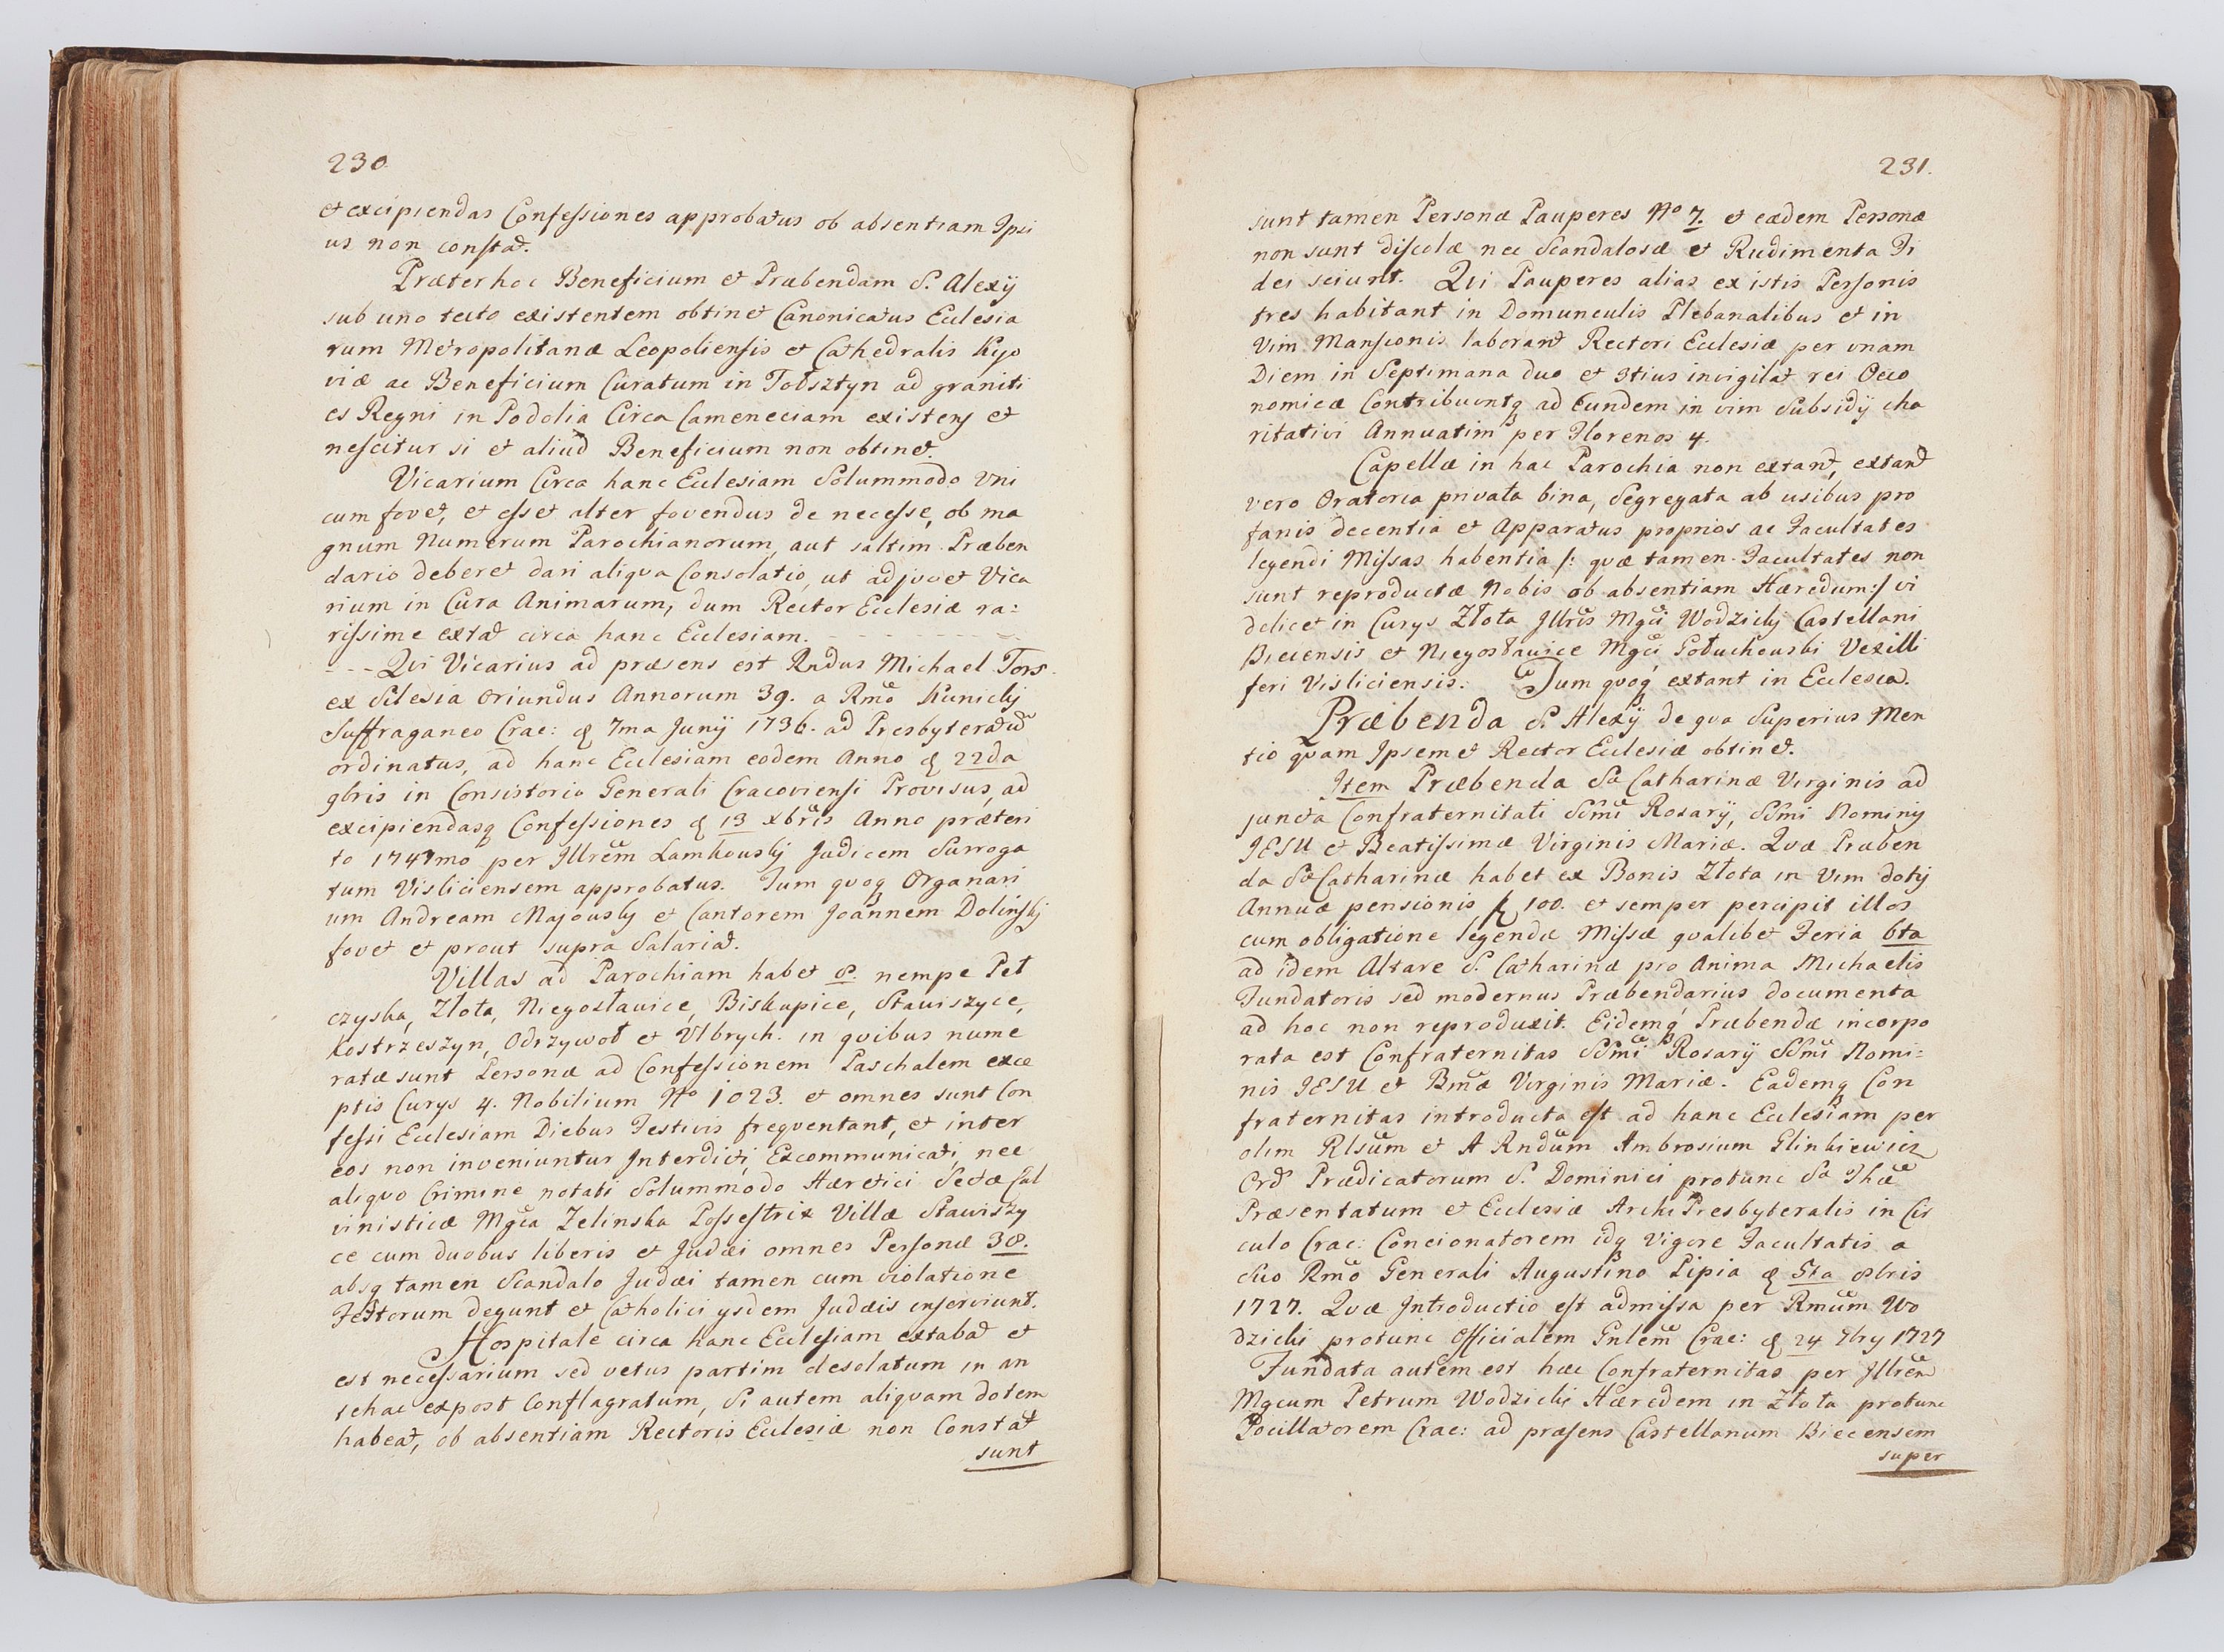 230
et excipiendas Confessiones approbatus ob absentiam Ipsi
us non constat.
Præter hoc Beneficium et Præbendam S. Alexÿ
sub uno tecto existentem obtinet Canonicatus Ecclesia
rum Metropolitanæ Leopoliensis et Cathedralis Kyo
viæ ac Beneficium Curatum in Tolsztyn ad graniti
es Regni in Podolia Circa Cameneciam existens et
nescitur si et aliud Beneficium non obtinet.
Vicarium Circa hanc Ecclesiam Solummodo Vni
cum fovet, et esset alter fovendus de necesse, ob ma
gnum Numerum Parochianorum, aut saltim Præben
dario deberet dari aliqva Consolatio, ut adjuvet Vica
rium in Cura Animarum, dum Rector Ecclesiæ ra:
rissime extat circa hanc Ecclesiam.
Qvi Vicarius ad præsens est Rndus Michael Tors
ex Silesia Oriundus Annorum 39. a Rmo Kunicky
Suffraganeo Crac: d 7ma Junÿ 1736. ad Presbyteratū
ordinatus, ad hanc Ecclesiam eodem Anno d 22da
9bris in Consistorio Generali Cracoviensi Provisus, ad
excipiendasq Confessiones d 13 Xbris Anno præteri
to 1747mo per Illrem Lamkousky Judicem Surroga
tum Visliciensem approbatus. Tum qvoq Organari
um Andream Majousky et Cantorem Joannem Dolinsky
fovet et prout supra Salariat.
Villas ad Parochiam habet 8. nempe Peł
czyska, Złota, Niegosłauice, Biskupice, Stawiszyce,
Kostrzeszyn, Odrzywoł et Vlbrych. in qvibus nume
ratæ sunt Personæ ad Confessionem Paschalem exce
ptis Curys 4. Nobilium No 1023. et omnes sunt Con
fessi Ecclesiam Diebus Festivis freqventant, et inter
eos non inveniuntur Interdicti, Excommunicati, nec
aliqvo Crimine notati Solummodo Hæretici Sectæ Cal
vinisticæ Mgca Zelinska Possestrix Villæ Stawiszy
ce cum duobus liberis et Judæi omnes Personæ 38.
absq tamen Scandalo Judæi tamen cum violatione
Festorum degunt et Catholici ysdem Judæis inserviunt.
Hospitale circa hanc Ecclesiam extabat et
est necessarium sed vetus partim desolatum in an
tehac expost Conflagratum, Si autem aliqvam dotem
habeat, ob absentiam Rectoris Ecclesiæ non Constat
sunt
231.
sunt tamen Personæ Pauperes No 7. et eædem Personæ
non sunt discolæ nec Scandalosæ et Rudimenta Fi
dei sciunt. Qvi Pauperes alias ex istis Personis
tres habitant in Domunculis Plebanalibus et in
Vim Mansionis laborant Rectori Ecclesiæ per vnam
Diem in Septimana duo et 3tius invigilat rei Oeco
nomicæ Contribuuntq ad Eundem in vim Subsidÿ cha
ritativi Annuatim per Florenos 4.
Capellæ in hac Parochia non extant, extant
vero Oratoria privata bina, Segregata ab usibus pro
fanis decentia et Apparatus proprios ac Facultates
legendi Missas habentia /: qvæ tamen Facultates non
sunt reproductæ Nobis ob absentiam Hæredum:/ vi
delicet in Curys Złota Illris Mgci Wodzicky Castellani
Biecensis et Niegosłauice Mgci Gołuchouski Vexilli
feri Visliciensis. Tum qvoq extant in Ecclesia.
Præbenda S. Alexÿ de qva Superius Men
tio qvam Ipsemet Rector Ecclesiæ obtinet.
Item Præbenda Sæ Catharinæ Virginis ad
juncta Confraternitati SSmi Rosarÿ, SSmi Nominis
IESU et Beatissimæ Virginis Mariæ. Qvæ Præben
da Sæ Catharinæ habet ex Bonis Złota in Vim dotis
Annuæ pensionis f 100. et semper percipit illos
cum obligatione legendæ Missæ qvalibet Feria 6ta
ad idem Altare S. Catharinæ pro Anima Michaelis
Fundatoris sed modernus Præbendarius documenta
ad hoc non reproduxit. Eidemq Præbendæ incorpo
rata est Confraternitas SSmi Rosarÿ SSmi Nomi:
nis IESU et Bmæ Virginis Mariæ. Eademq Con
fraternitas introducta est ad hanc Ecclesiam per
olim Rlsum et A Rndum Ambrosium Glinkiewicz
Ord Prædicatorum S. Dominici protunc Sa Thæ
Præsentatum et Ecclesiæ ArchiPresbyteralis in Cir
culo Crac: Concionatorem idq Vigore Facultatis a
Suo Rmo Generali Augustino Pipia d 5ta 8bris
1727. Qvæ Introductio est admissa per Rmum Wo
dzicki protunc Officialem Gnlem Crac: d 24 7bry 1727
Fundata autem est hæc Confraternitas per Illrem
Mgcum Petrum Wodzicki Hæredem in Złota protunc
Pocillatorem Crac: ad præsens Castellanum Biecensem
super